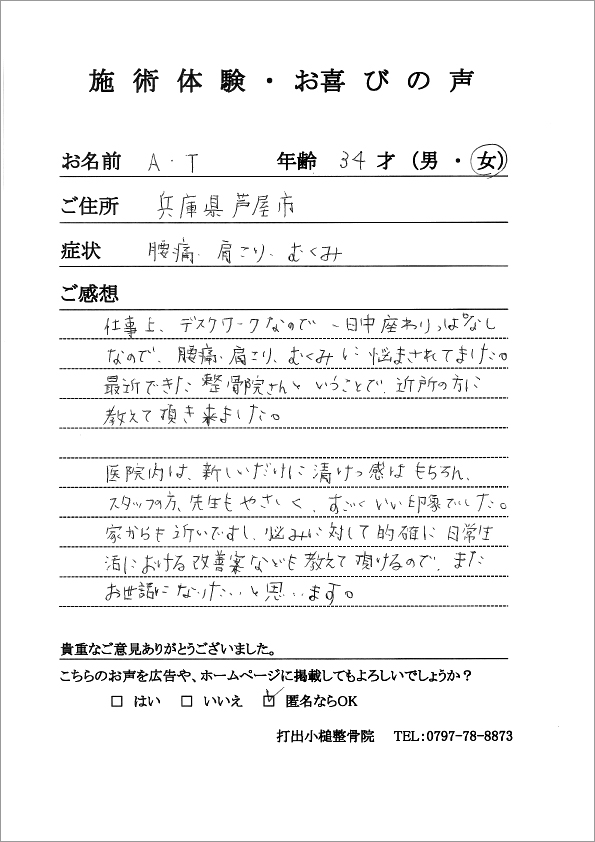 施術体験・お喜びの声
お名前 A.T 年齢 34才（男・女）
ご住所 兵庫県芦屋市
症状 腰痛、肩こり、むくみ
ご感想
仕事上、デスクワークなので、一日中座わりっぱなし
なので、腰痛、肩こり、むくみに悩まされてました。
最近できた整骨院さんということで、近所の方に
教えて頂き来ました。
医院内は、新しいだけに清けつ感はもちろん、
スタッフの方、先生もやさしく、すごくいい印象でした。
家からも近いですし、悩みに対して的確に日常生
活における改善案なども教えて頂けるので、また
お世話になりたいと思います。
貴重なご意見ありがとうございました。
こちらのお声を広告や、ホームページに掲載してもよろしいでしょうか？
□ はい □ いいえ ☑ 匿名ならOK
打出小槌整骨院 TEL:0797-78-8873